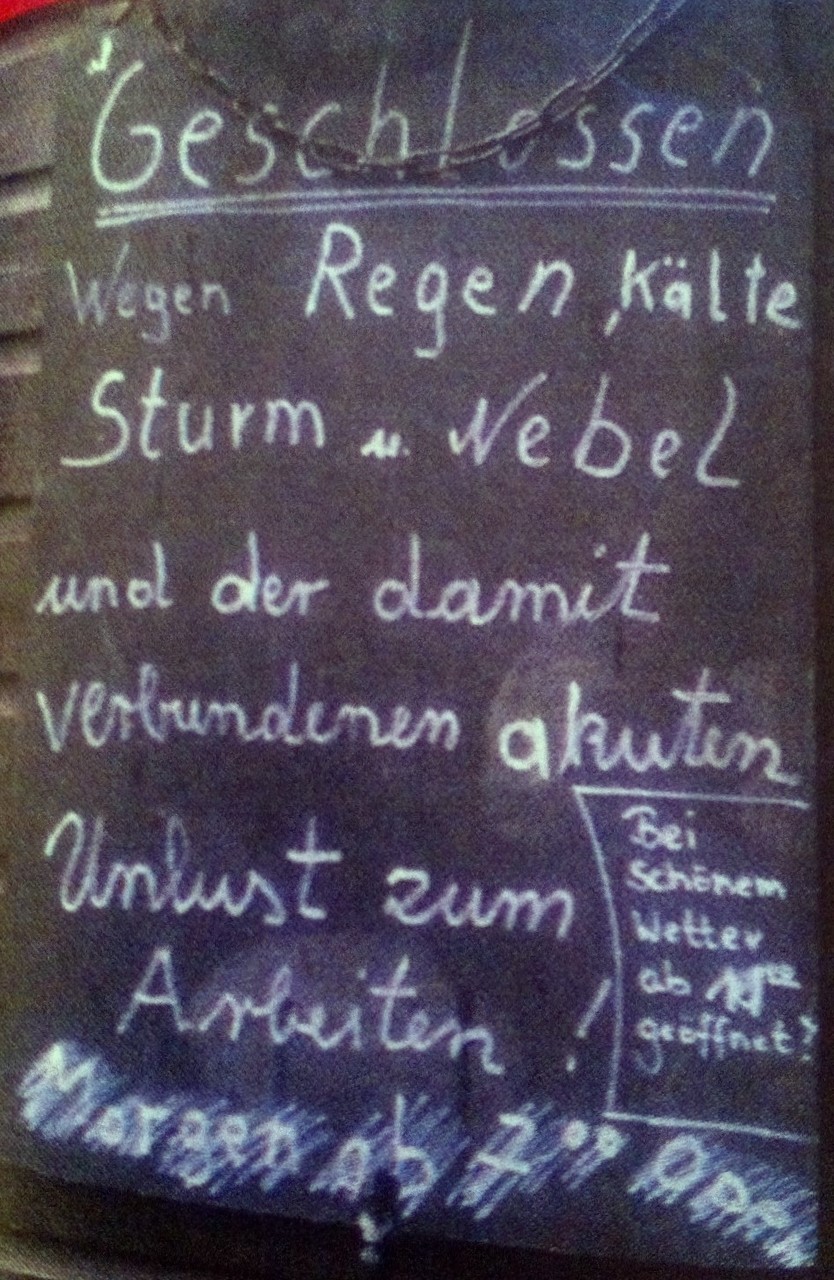 Geschlossen
Wegen Regen, Kälte
Sturm u. Nebel
und der damit
verbundenen akuten
Unlust zum
Arbeiten !
Bei
Schönem
Wetter
ab
geöffnet?
Morgen ab 2°° Open